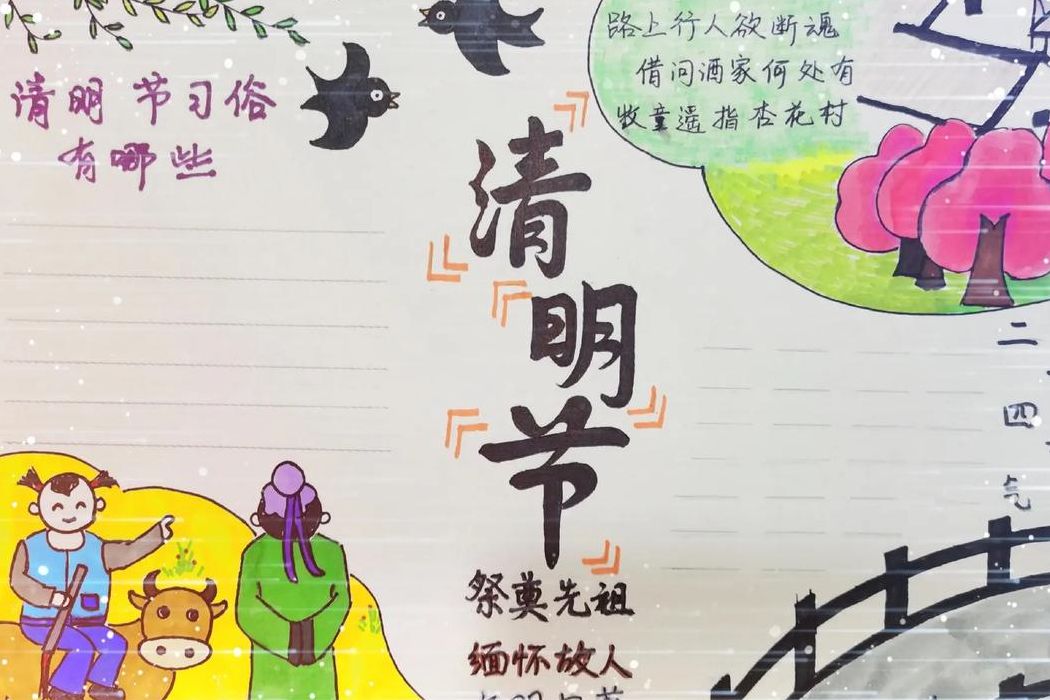 清明节习俗
有哪些
路上行人欲断魂
借问酒家何处有
牧童遥指杏花村
清
明
节
祭奠先祖
缅怀故人
二
四
气